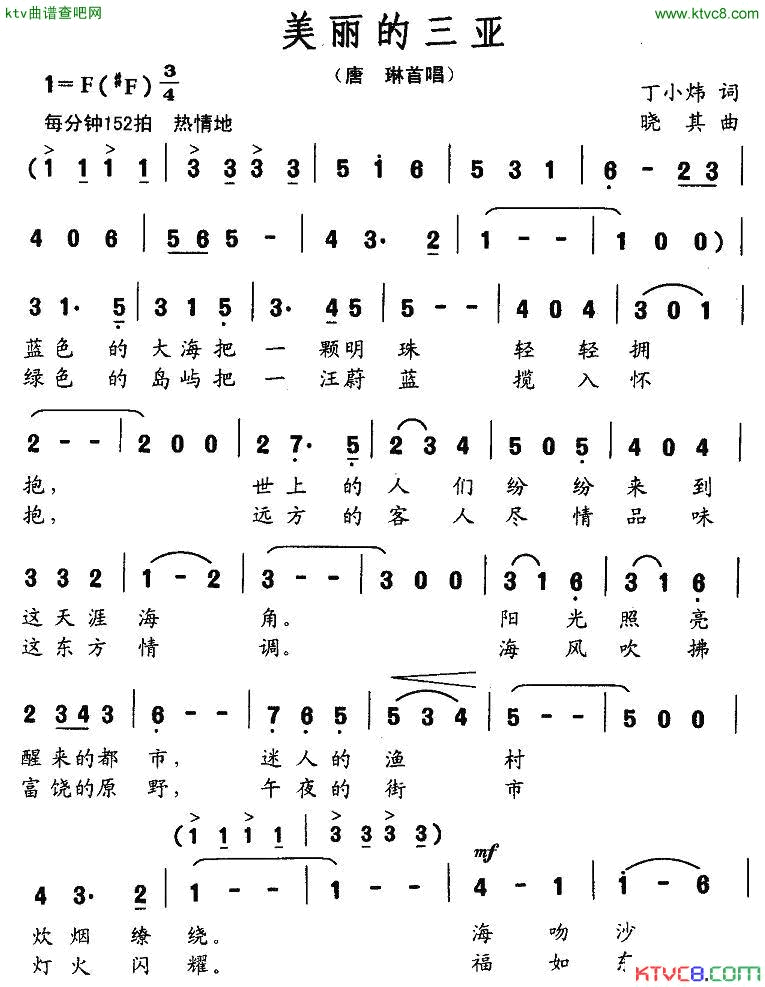 ktv曲谱查吧网
www.ktvc8.com
美丽的三亚
(唐 琳首唱)
1=F(#F) 3/4
丁小炜 词
每分钟152拍 热情地
晓 其 曲
(1 1 1 1 | 3 3 3 3 | 5 i 6 | 5 3 1 | 6 - 2 3 |
4 0 6 | 5 6 5 - | 4 3· 2 | 1 - - | 1 0 0 ) |
3 1· 5 | 3 1 5 | 3· 4 5 | 5 - - | 4 0 4 | 3 0 1 |
蓝色 的 大海把 一 颗明 珠 轻 轻 拥
绿色 的 岛屿把 一 汪蔚 蓝 揽 入 怀
2 - - | 2 0 0 | 2 7· 5 | 2 3 4 | 5 0 5 | 4 0 4 |
抱, 世上 的 人 们 纷 纷 来 到
抱, 远方 的 客 人 尽 情 品 味
3 3 2 | 1 - 2 | 3 - - | 3 0 0 | 3 1 6 | 3 1 6 |
这天涯 海 角。 阳 光 照 亮
这东方 情 调。 海 风 吹 拂
2 3 4 3 | 6 - - | 7 6 5 | 5 3 4 | 5 - - | 5 0 0 |
醒来的都 市, 迷人的 渔 村
富饶的原 野, 午夜的 街 市
(1 1 1 1 | 3 3 3 3)
mf
4 3· 2 | 1 - - | 1 - - | 4 - 1 | i - 6 |
炊 烟 缭 绕。 海 吻 沙
灯 火 闪 耀。 福 如
KTVC8.com